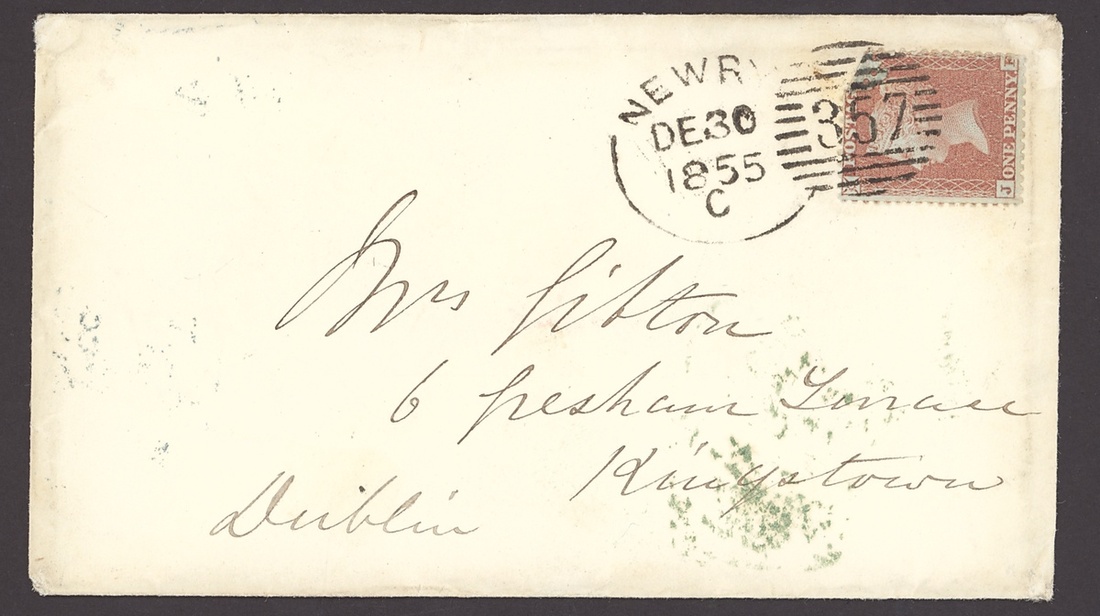 NEWRY
DE30
1855
C
357
POSTAGE
ONE PENNY
J
Mrs Gibton
6 Gresham Terrace
Kingstown
Dublin